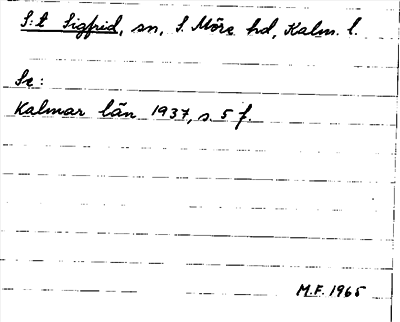 S:t Sigfrid, sn, S. Möre hd, Kalm. l.
Se:
Kalmar län 1937, s. 5 f.
M.F. 1965